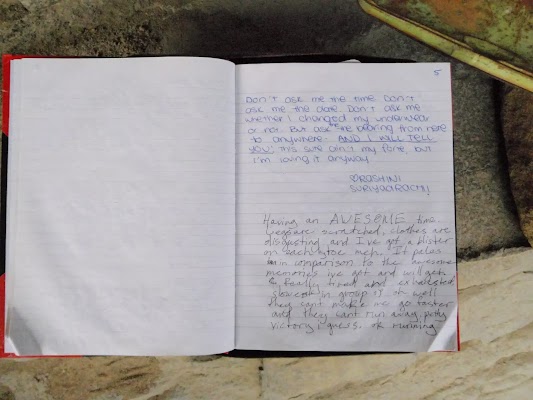 5
Don't ask me the time. Don't
ask me the date. Don't ask me
whether I changed my underwear
or not. But ask me the bearing from here
to anywhere - AND I WILL TELL
YOU! This sure ain't my forte, but
I'm loving it anyway
Having an AWESOME time.
Legs are scratched, clothes are
disgusting and I've got a blister
on each toe meh. It pales
in comparison to the awesome
memories ive got and will get.
Really tired and exhausted
slowest in group if oh well
they cant make me go faster
and they cant run away, petty
victory I guess. ok running